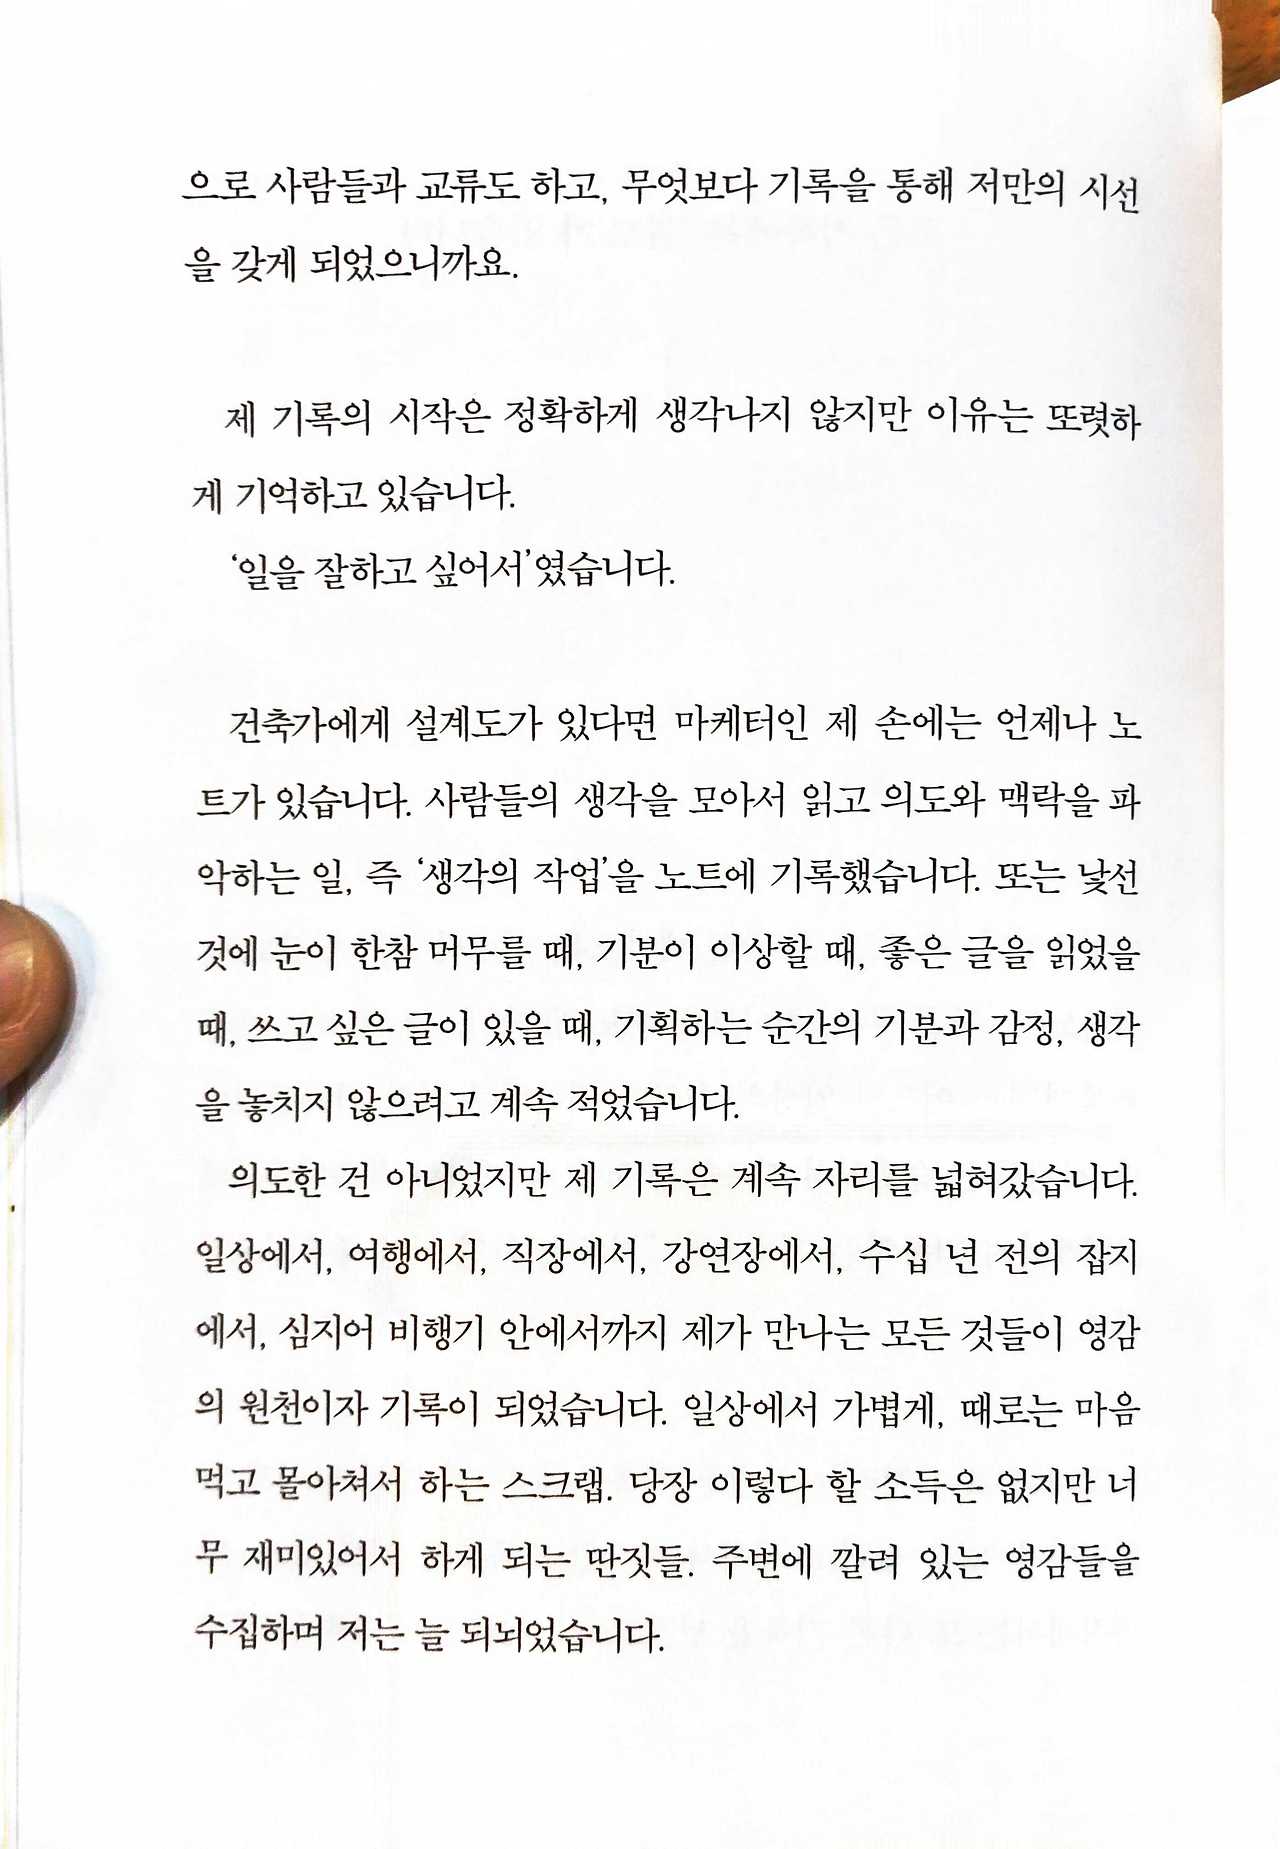 으로 사람들과 교류도 하고, 무엇보다 기록을 통해 저만의 시선
을 갖게 되었으니까요.
제 기록의 시작은 정확하게 생각나지 않지만 이유는 또렷하
게 기억하고 있습니다.
‘일을 잘하고 싶어서’였습니다.
건축가에게 설계도가 있다면 마케터인 제 손에는 언제나 노
트가 있습니다. 사람들의 생각을 모아서 읽고 의도와 맥락을 파
악하는 일, 즉 ‘생각의 작업’을 노트에 기록했습니다. 또는 낯선
것에 눈이 한참 머무를 때, 기분이 이상할 때, 좋은 글을 읽었을
때, 쓰고 싶은 글이 있을 때, 기획하는 순간의 기분과 감정, 생각
을 놓치지 않으려고 계속 적었습니다.
의도한 건 아니었지만 제 기록은 계속 자리를 넓혀갔습니다.
일상에서, 여행에서, 직장에서, 강연장에서, 수십 년 전의 잡지
에서, 심지어 비행기 안에서까지 제가 만나는 모든 것들이 영감
의 원천이자 기록이 되었습니다. 일상에서 가볍게, 때로는 마음
먹고 몰아쳐서 하는 스크랩. 당장 이렇다 할 소득은 없지만 너
무 재미있어서 하게 되는 딴짓들. 주변에 깔려 있는 영감들을
수집하며 저는 늘 되뇌었습니다.